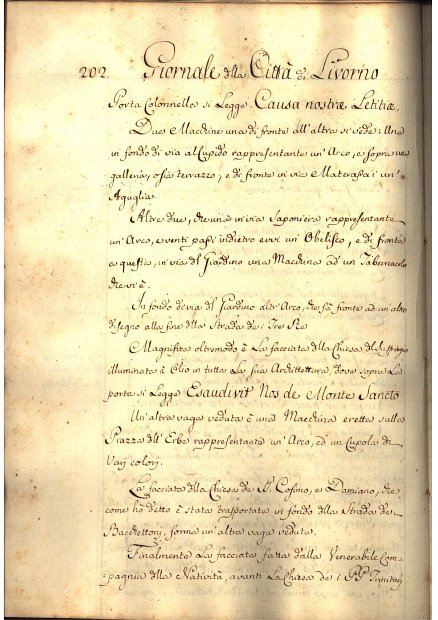 202. Giornale della Città di Livorno
Porta Colonnella si Legge. Causa nostræ Letitiæ.
Due Macchine una di fronte all'altra si vede: Una
in fondo di via al Cupido rappresentante un'Arco, e sopra
galleria, osia terrazzo, e di fronte in via Materassai un'
Aguglia.
Altre due, che una in via Saponiera rappresentante
un'Arco, e venti passi indietro evvi un'Obelisco, e di fronte
a questa, in via del Giardino una Macchina ad un Tabernacolo
che vi è.
In fondo di via del Giardino altr'Arco, che fà fronte ad un altro
disegno alla fine della Strada de i Tre Rè
Magnifica oltremodo è La facciata della Chiesa del Suffragio
illuminata à Olio in tutta La sua Architettura, dove sopra La
porta si Legge Esaudivit Nos de Monte Sancto
Un'altra vaga veduta è una Macchina eretta sulla
Piazza dell'Erbe rappresentante un'Arco, ed un Cupola di
Varj colori.
La facciata della Chiesa de S. Cosimo, e Damiano, che
come hò detto è stata trasportata in fondo della Strada de
Bacchettoni, forma un'altra vaga veduta.
Finalmente La facciata fatta dalla Venerabile Com=
pagnia della Natività, avanti La Chiesa de i PP. Trinitarj